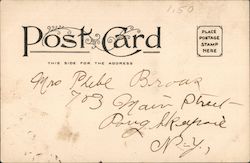 1.50
Post Card
THIS SIDE FOR THE ADDRESS
PLACE
POSTAGE
STAMP
HERE
Mrs Phebe
703 Main Street
Poughkeepsie
N.Y.,